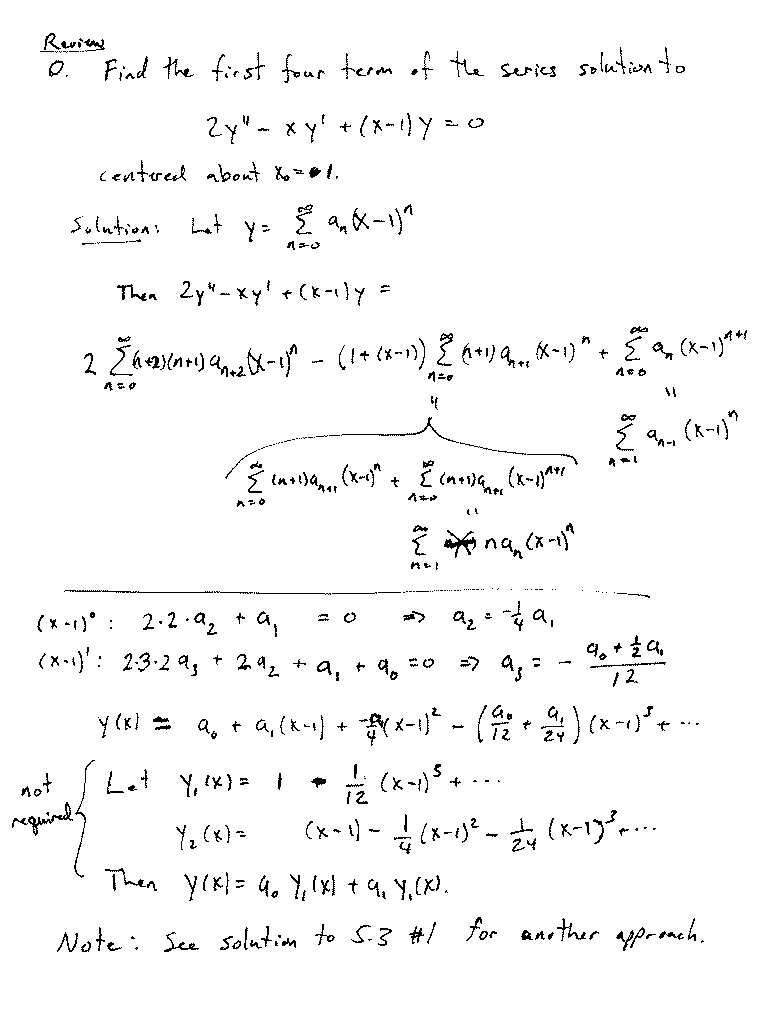 Review
0. Find the first four term of the series solution to
2y" - xy' + (x-1)y = 0
centered about x₀ = 1.
Solution: Let y = ∑_{n=0}^{∞} aₙ(x-1)ⁿ
Then 2y" - xy' + (x-1)y =
2 ∑_{n=0}^{∞} (n+2)(n+1) a_{n+2} (x-1)ⁿ - (1+(x-1)) ∑_{n=0}^{∞} (n+1) a_{n+1} (x-1)ⁿ + ∑_{n=0}^{∞} aₙ (x-1)^{n+1}
"
"
∑_{n=1}^{∞} a_{n-1} (x-1)ⁿ
∑_{n=0}^{∞} (n+1) a_{n+1} (x-1)ⁿ + ∑_{n=0}^{∞} (n+1) a_{n+1} (x-1)^{n+1}
"
∑_{n=1}^{∞} n aₙ (x-1)ⁿ
(x-1)⁰ : 2·2·a₂ + a₁ = 0 ⇒ a₂ = -1/4 a₁
(x-1)¹ : 2·3·2 a₃ + 2a₂ + a₁ + a₀ = 0 ⇒ a₃ = - (a₀ + 1/2 a₁)/12
y(x) = a₀ + a₁(x-1) + -a₁/4 (x-1)² - (a₀/12 + a₁/24) (x-1)³ + ...
not required
Let y₁(x) = 1 - 1/12 (x-1)³ + ...
y₂(x) = (x-1) - 1/4 (x-1)² - 1/24 (x-1)³ + ...
Then y(x) = a₀ y₁(x) + a₁ y₁(x).
Note: See solution to 5.3 #1 for another approach.